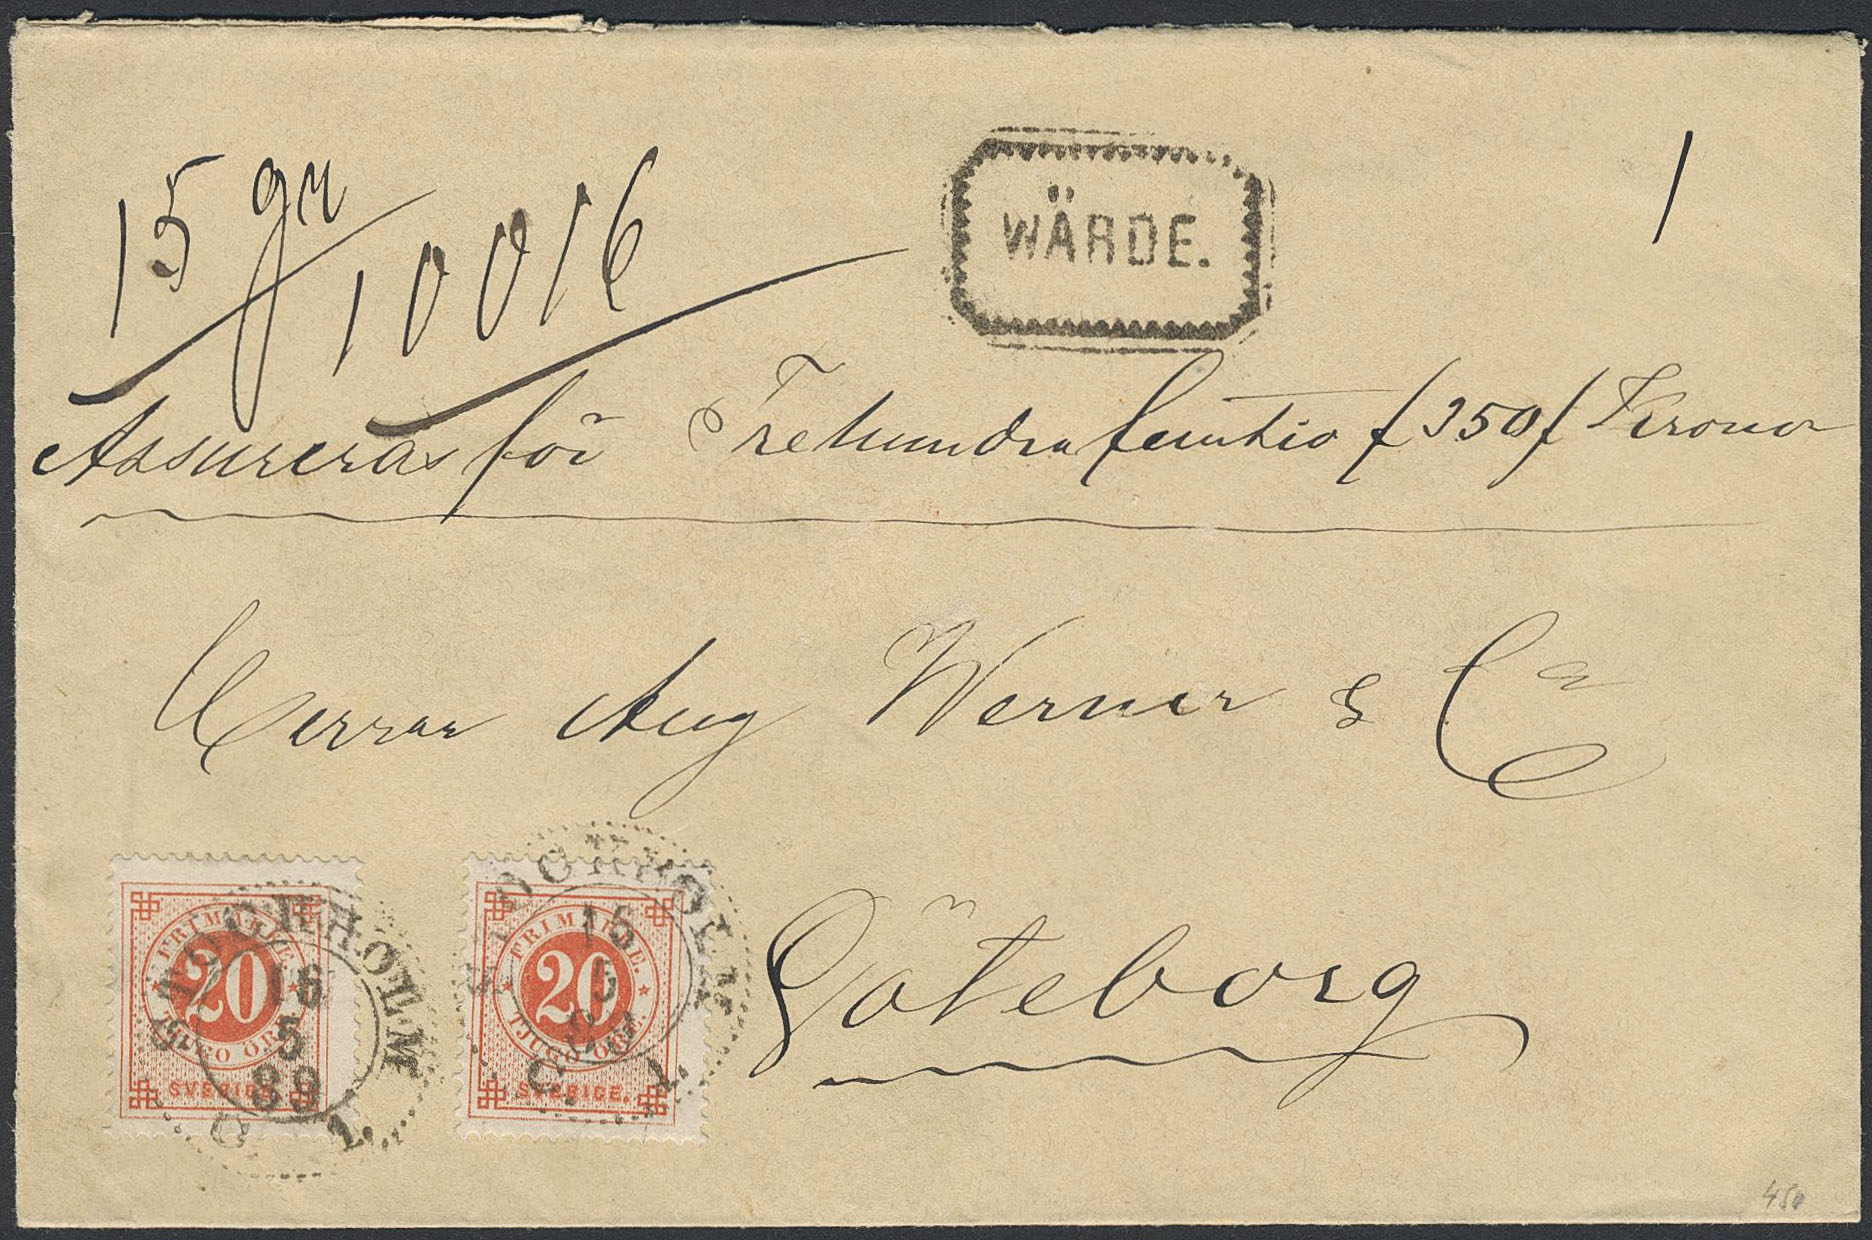 15 gr
10016
WÄRDE.
1
Assureras för Trehundrafemtio /350/ Kronor
Herrar Aug Werner & Co
Göteborg
STOCKHOLM
16
5
89
C. 1.
FRIMÄRKE.
20
TJUGO ÖRE.
SVERIGE.
STOCKHOLM
15
5
89
C. 1.
FRIMÄRKE.
20
TJUGO ÖRE.
SVERIGE.
450